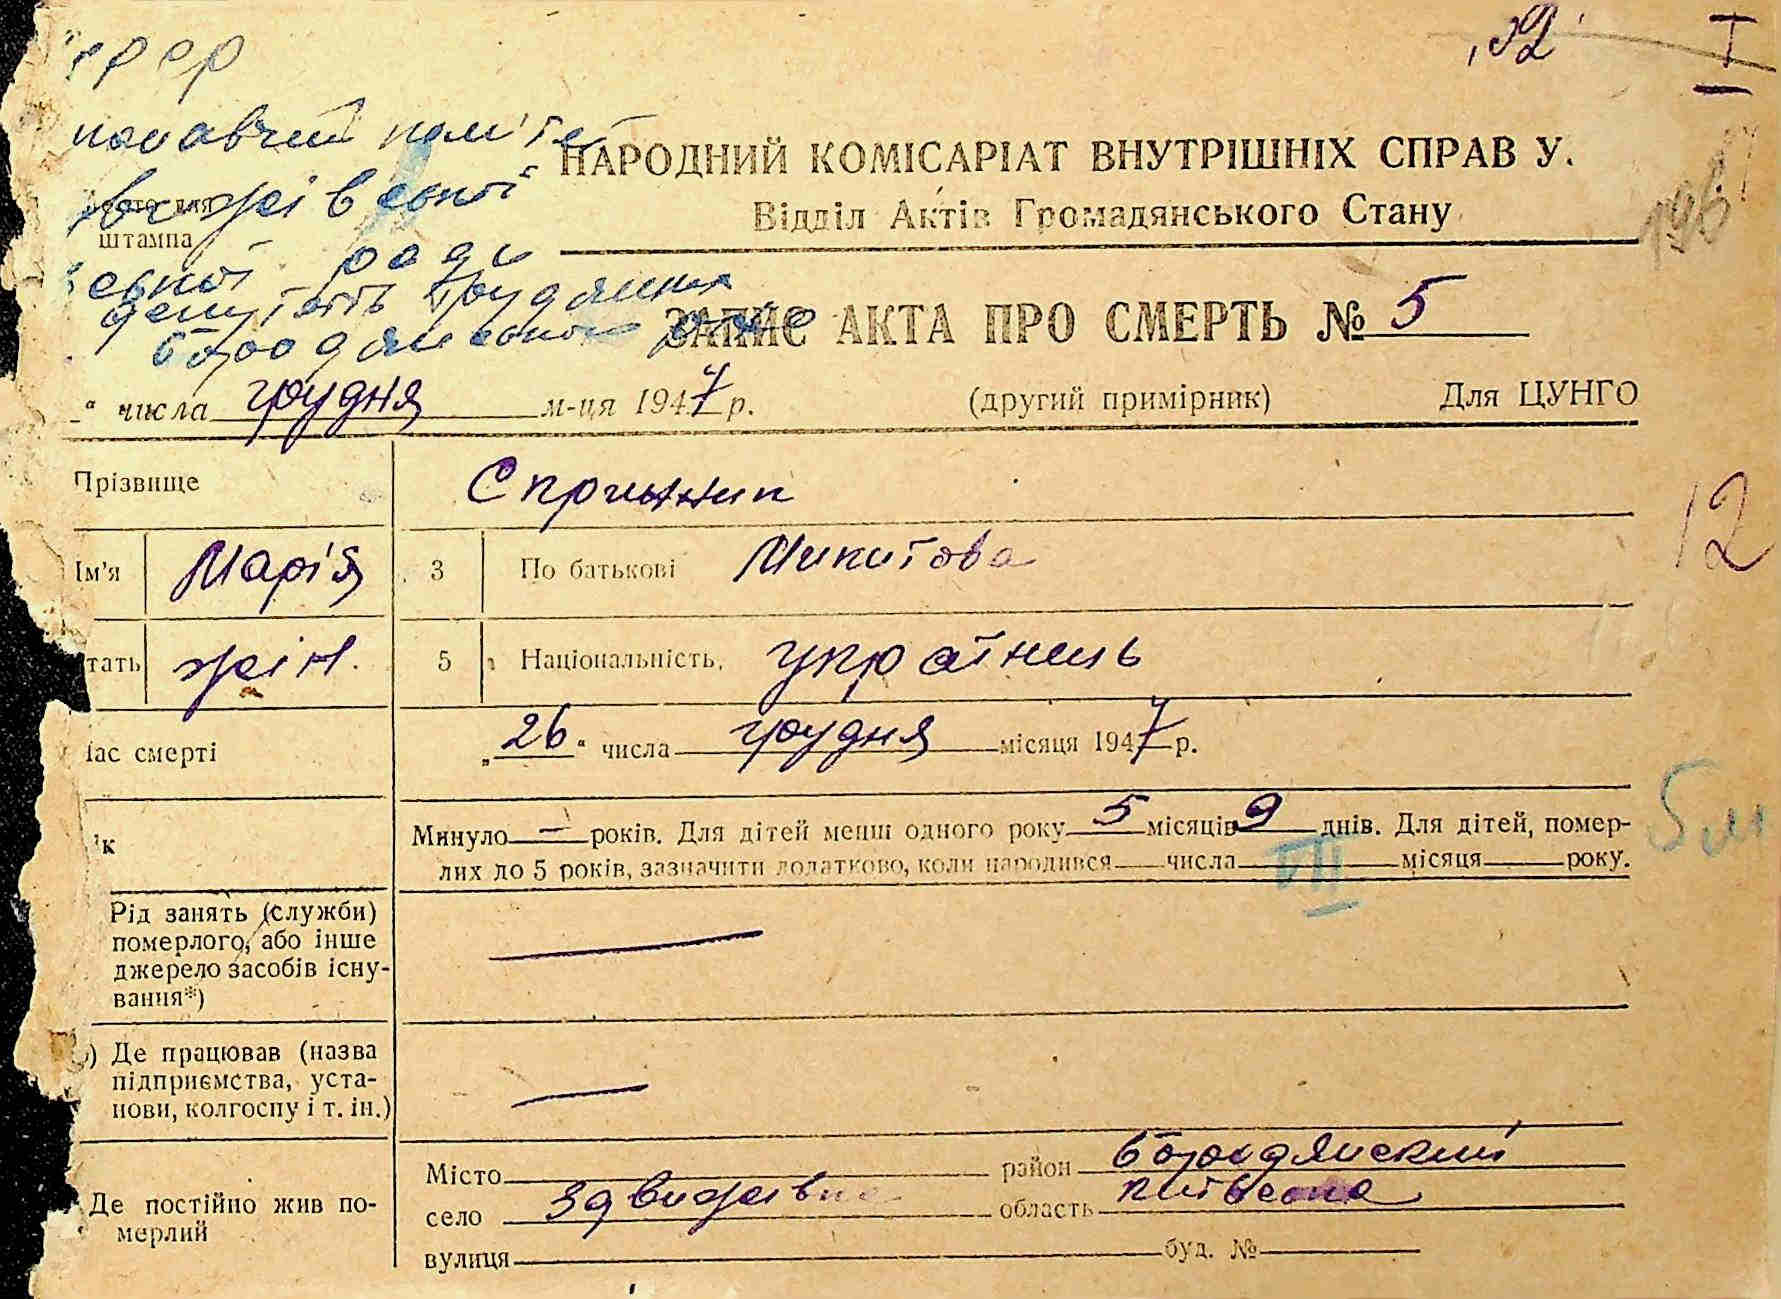 УРСР
виконавчий ком'тет
Здвижівської
Місто для
штампа
сільської ради
депутатів трудящих
бородянського р-ну
92
I
196
НАРОДНИЙ КОМІСАРІАТ ВНУТРІШНІХ СПРАВ У.
Відділ Актів Громадянського Стану
ЗАПИС АКТА ПРО СМЕРТЬ № 5
" числа грудня м-ця 1947 р. (другий примірник) Для ЦУНГО
Прізвище
12
Ім'я Марія 3 По батькові Микитова
тать жін. 5 Національність, українець
Час смерті „26" числа грудня місяця 1947 р.
ік Минуло — років. Для дітей менш одного року 5 місяців 9 днів. Для дітей, помер-
лих до 5 років, зазначити додатково, коли народився числа VII місяця року.
5 м
Рід занять (служби)
померлого, або інше
джерело засобів існу-
вання*)
) Де працював (назва
підприємства, уста-
нови, колгоспу і т. ін.)
Де постійно жив по-
мерлий
Місто район бородянський
село Здвижівка область київська
вулиця буд. №